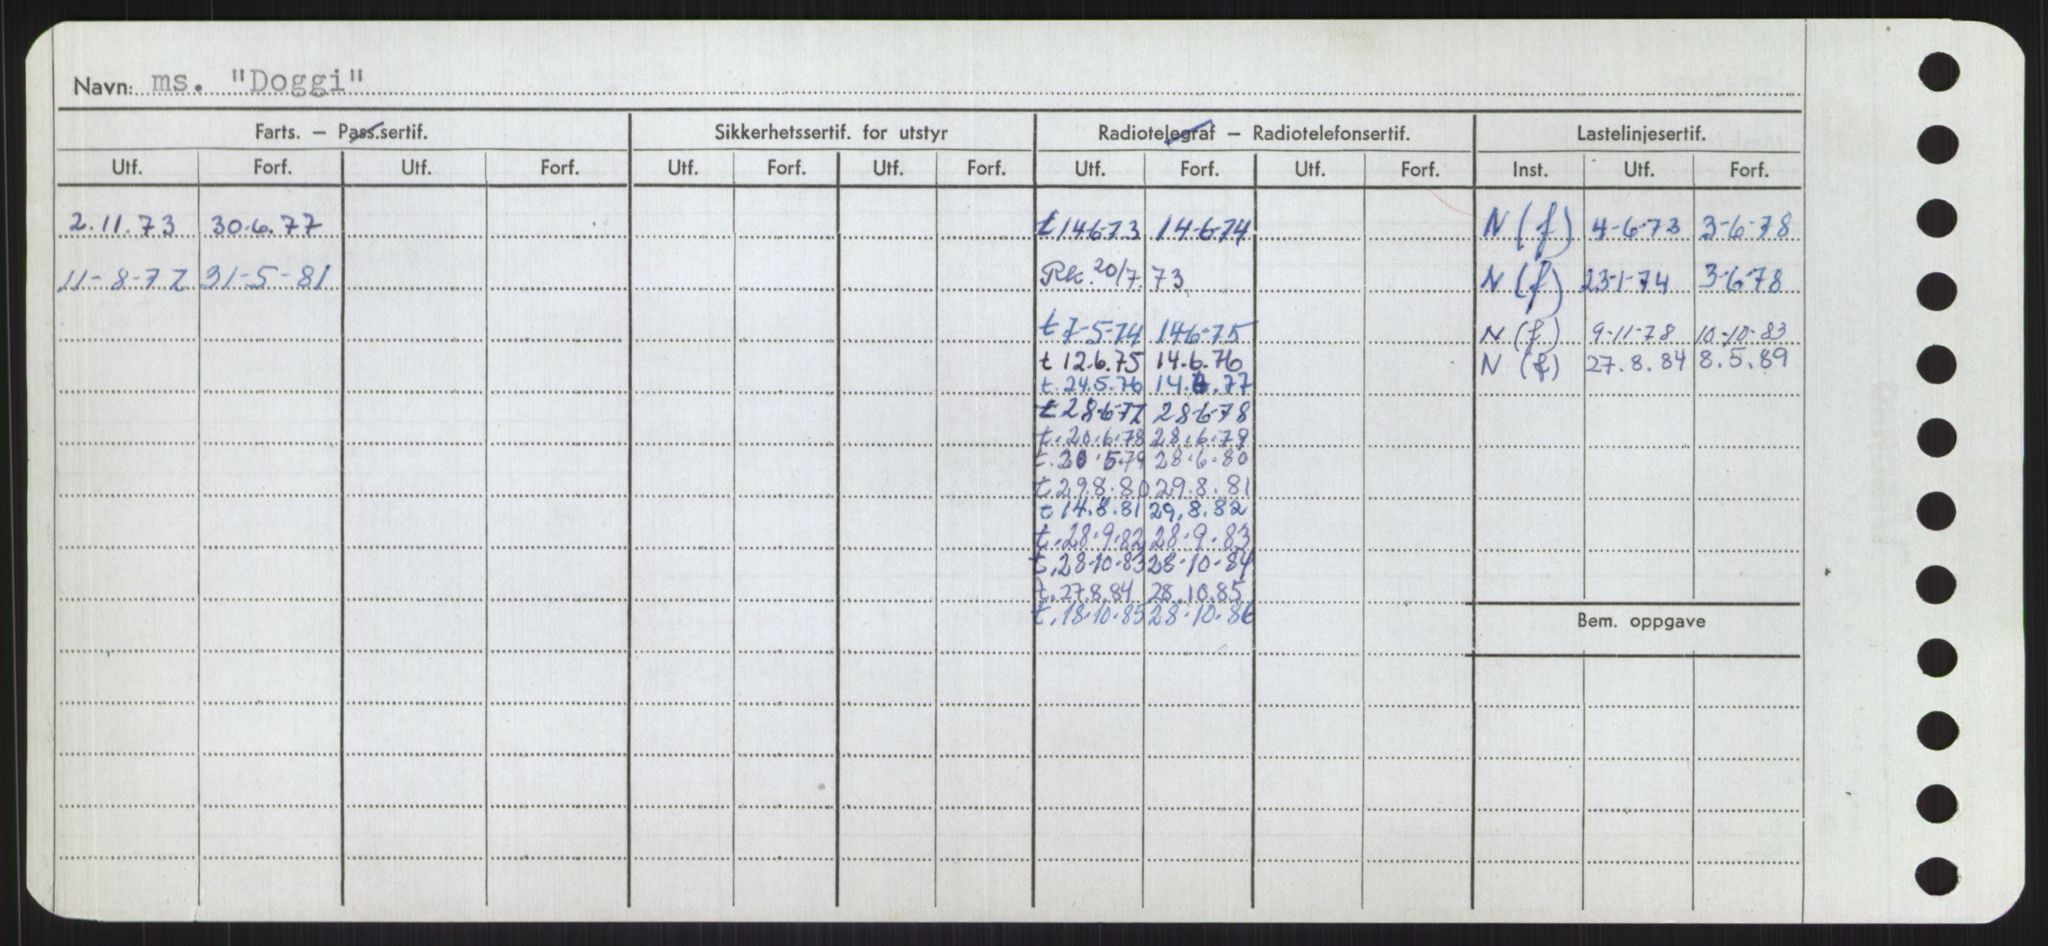 Navn: ms. "Doggi"
Farts. – Pass.sertif. Sikkerhetssertif. for utstyr Radiotelegraf – Radiotelefonsertif. Lastelinjesertif.
Utf. Forf. Utf. Forf. Utf. Forf. Utf. Forf. Utf. Forf. Utf. Forf. Inst. Utf. Forf.
2.11.73 30.6.77 t 14-6-73 14-6-74 N (f) 4-6-73 3-6-78
11-8-77 31-5-81 Rk. 20/7.73 N (f) 23-1-74 3-6-78
t 7-5-74 14-6-75 N (f) 9-11-78 10-10-83
t 12.6.75 14.6.76 N (f) 27.8.84 8.5.89
t. 24.5.76 14.6.77
t 28-6-77 28-6-78
t. 20.6.78 28.6.79
t. 5.79 28.6.80
t. 29.8.80 29.8.81
t 14.8.81 29.8.82
t. 28.9.82 28.9.83
t. 28.10.83 28.10.84
t. 27.8.84 28.10.85
t. 18.10.85 28.10.86
Bem. oppgave